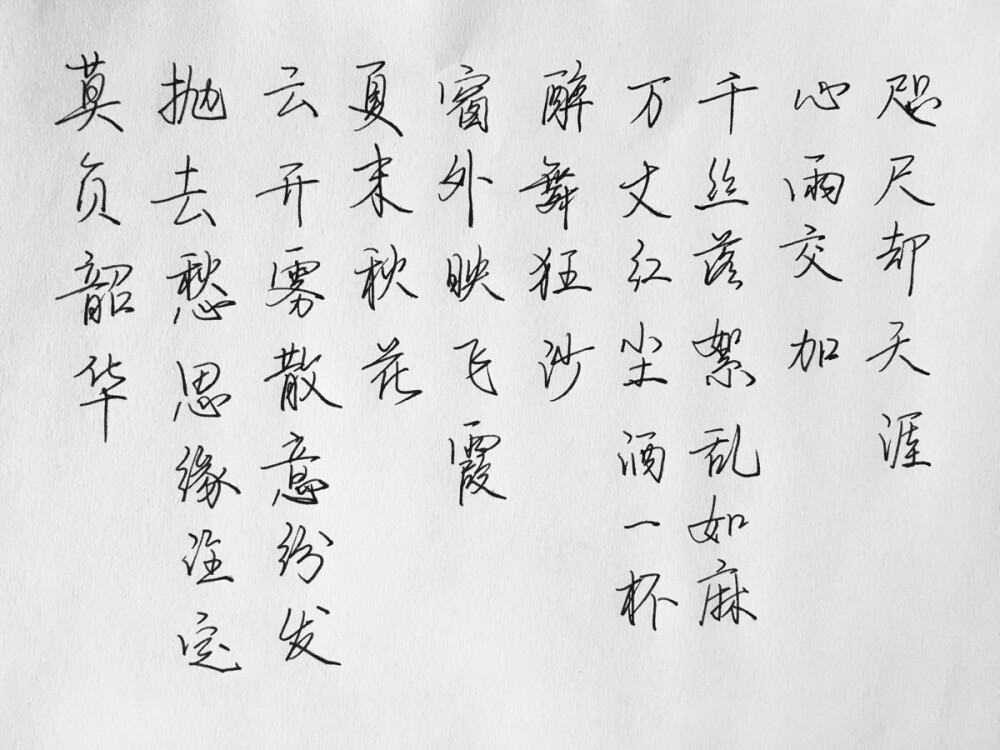 咫尺却天涯
心雨交加
千丝落絮乱如麻
万丈红尘酒一杯
醉舞狂沙
窗外映飞霞
夏末秋花
云开雾散意纷发
抛去愁思缘注定
莫负韶华